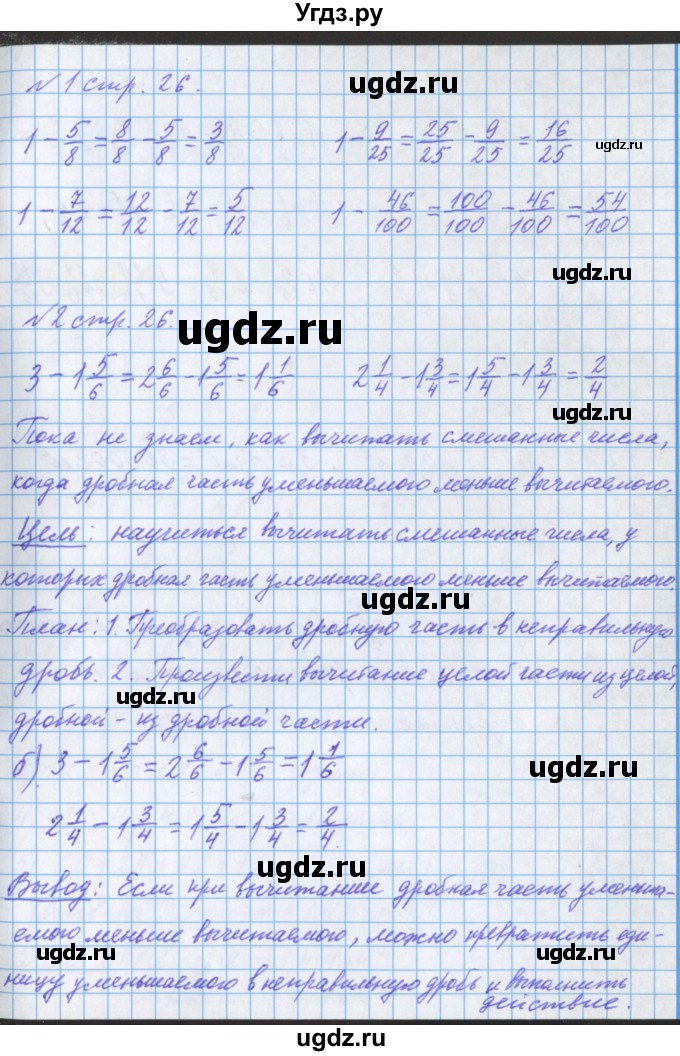 Угдз.ру
№1 стр. 26. ugdz.ru
1 - 5/8 = 8/8 - 5/8 = 3/8 1 - 9/25 = 25/25 - 9/25 = 16/25 ugdz.ru
1 - 7/12 = 12/12 - 7/12 = 5/12 1 - 46/100 = 100/100 - 46/100 = 54/100
ugdz.ru
№2 стр. 26. ugdz.ru
3 - 1 5/6 = 2 6/6 - 1 5/6 = 1 1/6 2 1/4 - 1 3/4 = 1 5/4 - 1 3/4 = 2/4
ugdz.ru
Пока не знаем, как вычитать смешанные числа,
когда дробная часть уменьшаемого меньше вычитаемого.
Цель: научиться вычитать смешанные числа, у
которых дробная часть уменьшаемого меньше вычитаемого.
ugdz.ru
План: 1. Преобразовать дробную часть в неправильную
дробь. 2. Произвести вычитание целой части из целой,
ugdz.ru
дробной - из дробной части.
б) 3 - 1 5/6 = 2 6/6 - 1 5/6 = 1 1/6 ugdz.ru
2 1/4 - 1 3/4 = 1 5/4 - 1 3/4 = 2/4.
ugdz.ru
Вывод: Если при вычитание дробная часть уменьша-
емого меньше вычитаемого, можно превратить еди-
ugdz.ru ugdz.ru
ницу уменьшаемого в неправильную дробь и выполнить
действие.
ugdz.ru